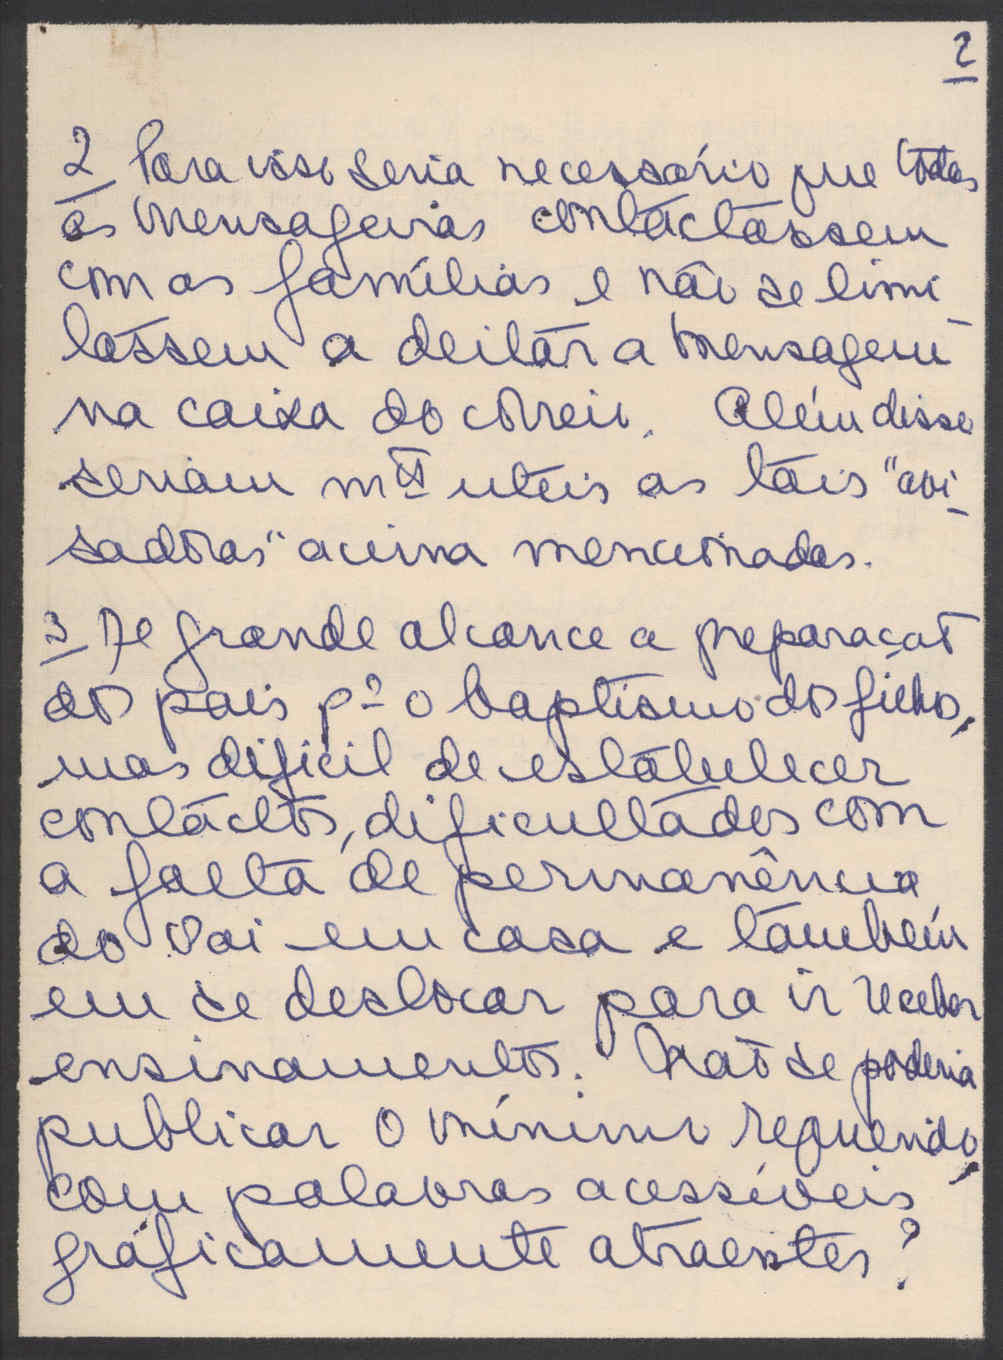 2
2 Para isso seria necessário que todas
as mensageiras contactassem
com as famílias e não se limi_
tassem a deitar a mensagem
na caixa do correio. Além disso
seriam mtº uteis as tais "avi_
sadoras" acima mencionadas.
3 De grande alcance a preparação
dos pais pª o baptismo dos filhos,
mas dificil de estabelecer
contáctos, dificultados com
a falta de permanência
do Pai em casa e também
em se deslocar para ir receber
ensinamentos. Não se poderia
publicar o mínimo requerido,
com palavras acessíveis
gráficamente atraentes?